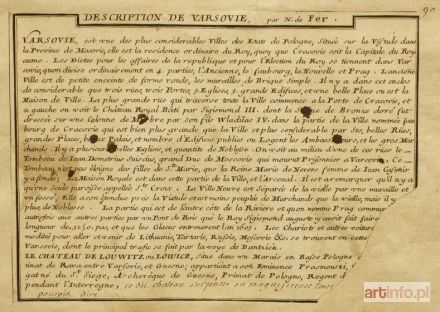 90
DESCRIPTION DE VARSOVIE, par N. de Fer.
VARSOVIE, est une des plus considerables Villes des Etats de Pologne, Située sur la Vistule dans
la Province de Masovie, elle est la residence ordinaire du Roy, quoy que Cracovie soit la Capitale du Roy
aume. Les Dietes pour les affaires de la republique et pour l'Election du Roy se tiennent dans Var
sovie, quon divise ordinairement en 4. parties, l'Ancienne, le fauxbourg, la Nouvelle et Prag. L'anciene
Ville est de petite enceinte de forme ronde, les murailles de Brique Simple. Il n'y a dans cet enclos
de considerable que trois rües, trois Portes, 3 Eglises, 3 grands Edifices, et une belle Place ou est la
Maison de Ville. La plus grande rüe qui traverse toute la Ville commence a la Porte de Cracovie, et
a gauche on voit le Château Royal Bâti par Sigismond III. dont la de Bronze dorée fut
dressée sur une Colonne de par son fils Wladislas IV. dans la partie de la Ville nommée faux
bourg de Cracovie qui est bien plus grande que la Ville et plus considerable par Ses belles Rües,
grandes Places, beaux Palais, et nombre d'Edifices publics ou Logent les Ambassadeurs, et les gros Mar
chands. Il y a plusieurs Eglises, et quantité de Noblesse. On voit au milieu d'une de ces rües le
Tombeau de Jean Demetrius Suiscius, grand Duc de Moscovie qui mourut Prisonnier a Varsovie. Ce
Tombeau n'est pas éloigné des filles de Ste. Marie, que la Reine Marie de Nevers femme de Jean Casimir
y a fondé. La Maison Royale est dans cette partie de la Ville, et l'Arcenal. Il est a remarquer qu'il n'y a
qu'une Seule paroisse appellée Ste. Croix. La Ville Neuve est Séparée de la vieille par une muraille et
un fossé, Elle a son étendue près la Vistule étant moins peuplée de Marchands que la vieille, mais il y
plus de Noblesse. La partie qui est de l'autre côté de la Riviere et quon nomme Prag commun
autrefois aux autres parties par un Pont de Bois que le Roy Sigismond auguste y avoit fait faire
longueur de 1150. pas, et que les Glaces entrenerent l'an 1603. Les Chariots et autres voiture
modités pour aller et venir de Lithuanie, Tartarie, Russie, Moscovie &c. se trouvent en cette
Varsovie, dont le principal trafic se fait par la voye de Dantzick.
LE CHATEAU DE LOUWITZ ou LOWICZ, Situé dans un Marais en Basse Pologne
tinat de Rava entre Varsovie, et Gnesne, appartient a son Eminence Prasmowski,
gat né du St. Siege, Archevêque de Gnesne, Primat de Pologne, Regent d
pendant l'Interregne, ce dit chateau surpasse en magnificence tout
pouvoir dire
artinfo.pl